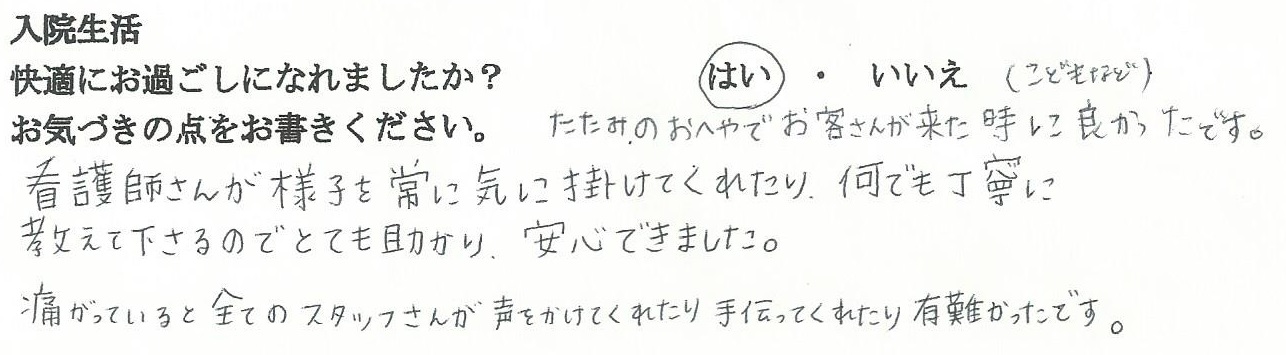 入院生活
快適にお過ごしになれましたか？ はい ・ いいえ (こどもなど)
お気づきの点をお書きください。 たたみのおへやでお客さんが来た時に良かったです。
看護師さんが様子を常に気に掛けてくれたり、何でも丁寧に
教えて下さるのでとても助かり、安心できました。
痛がっていると全てのスタッフさんが声をかけてくれたり手伝ってくれたり有難かったです。